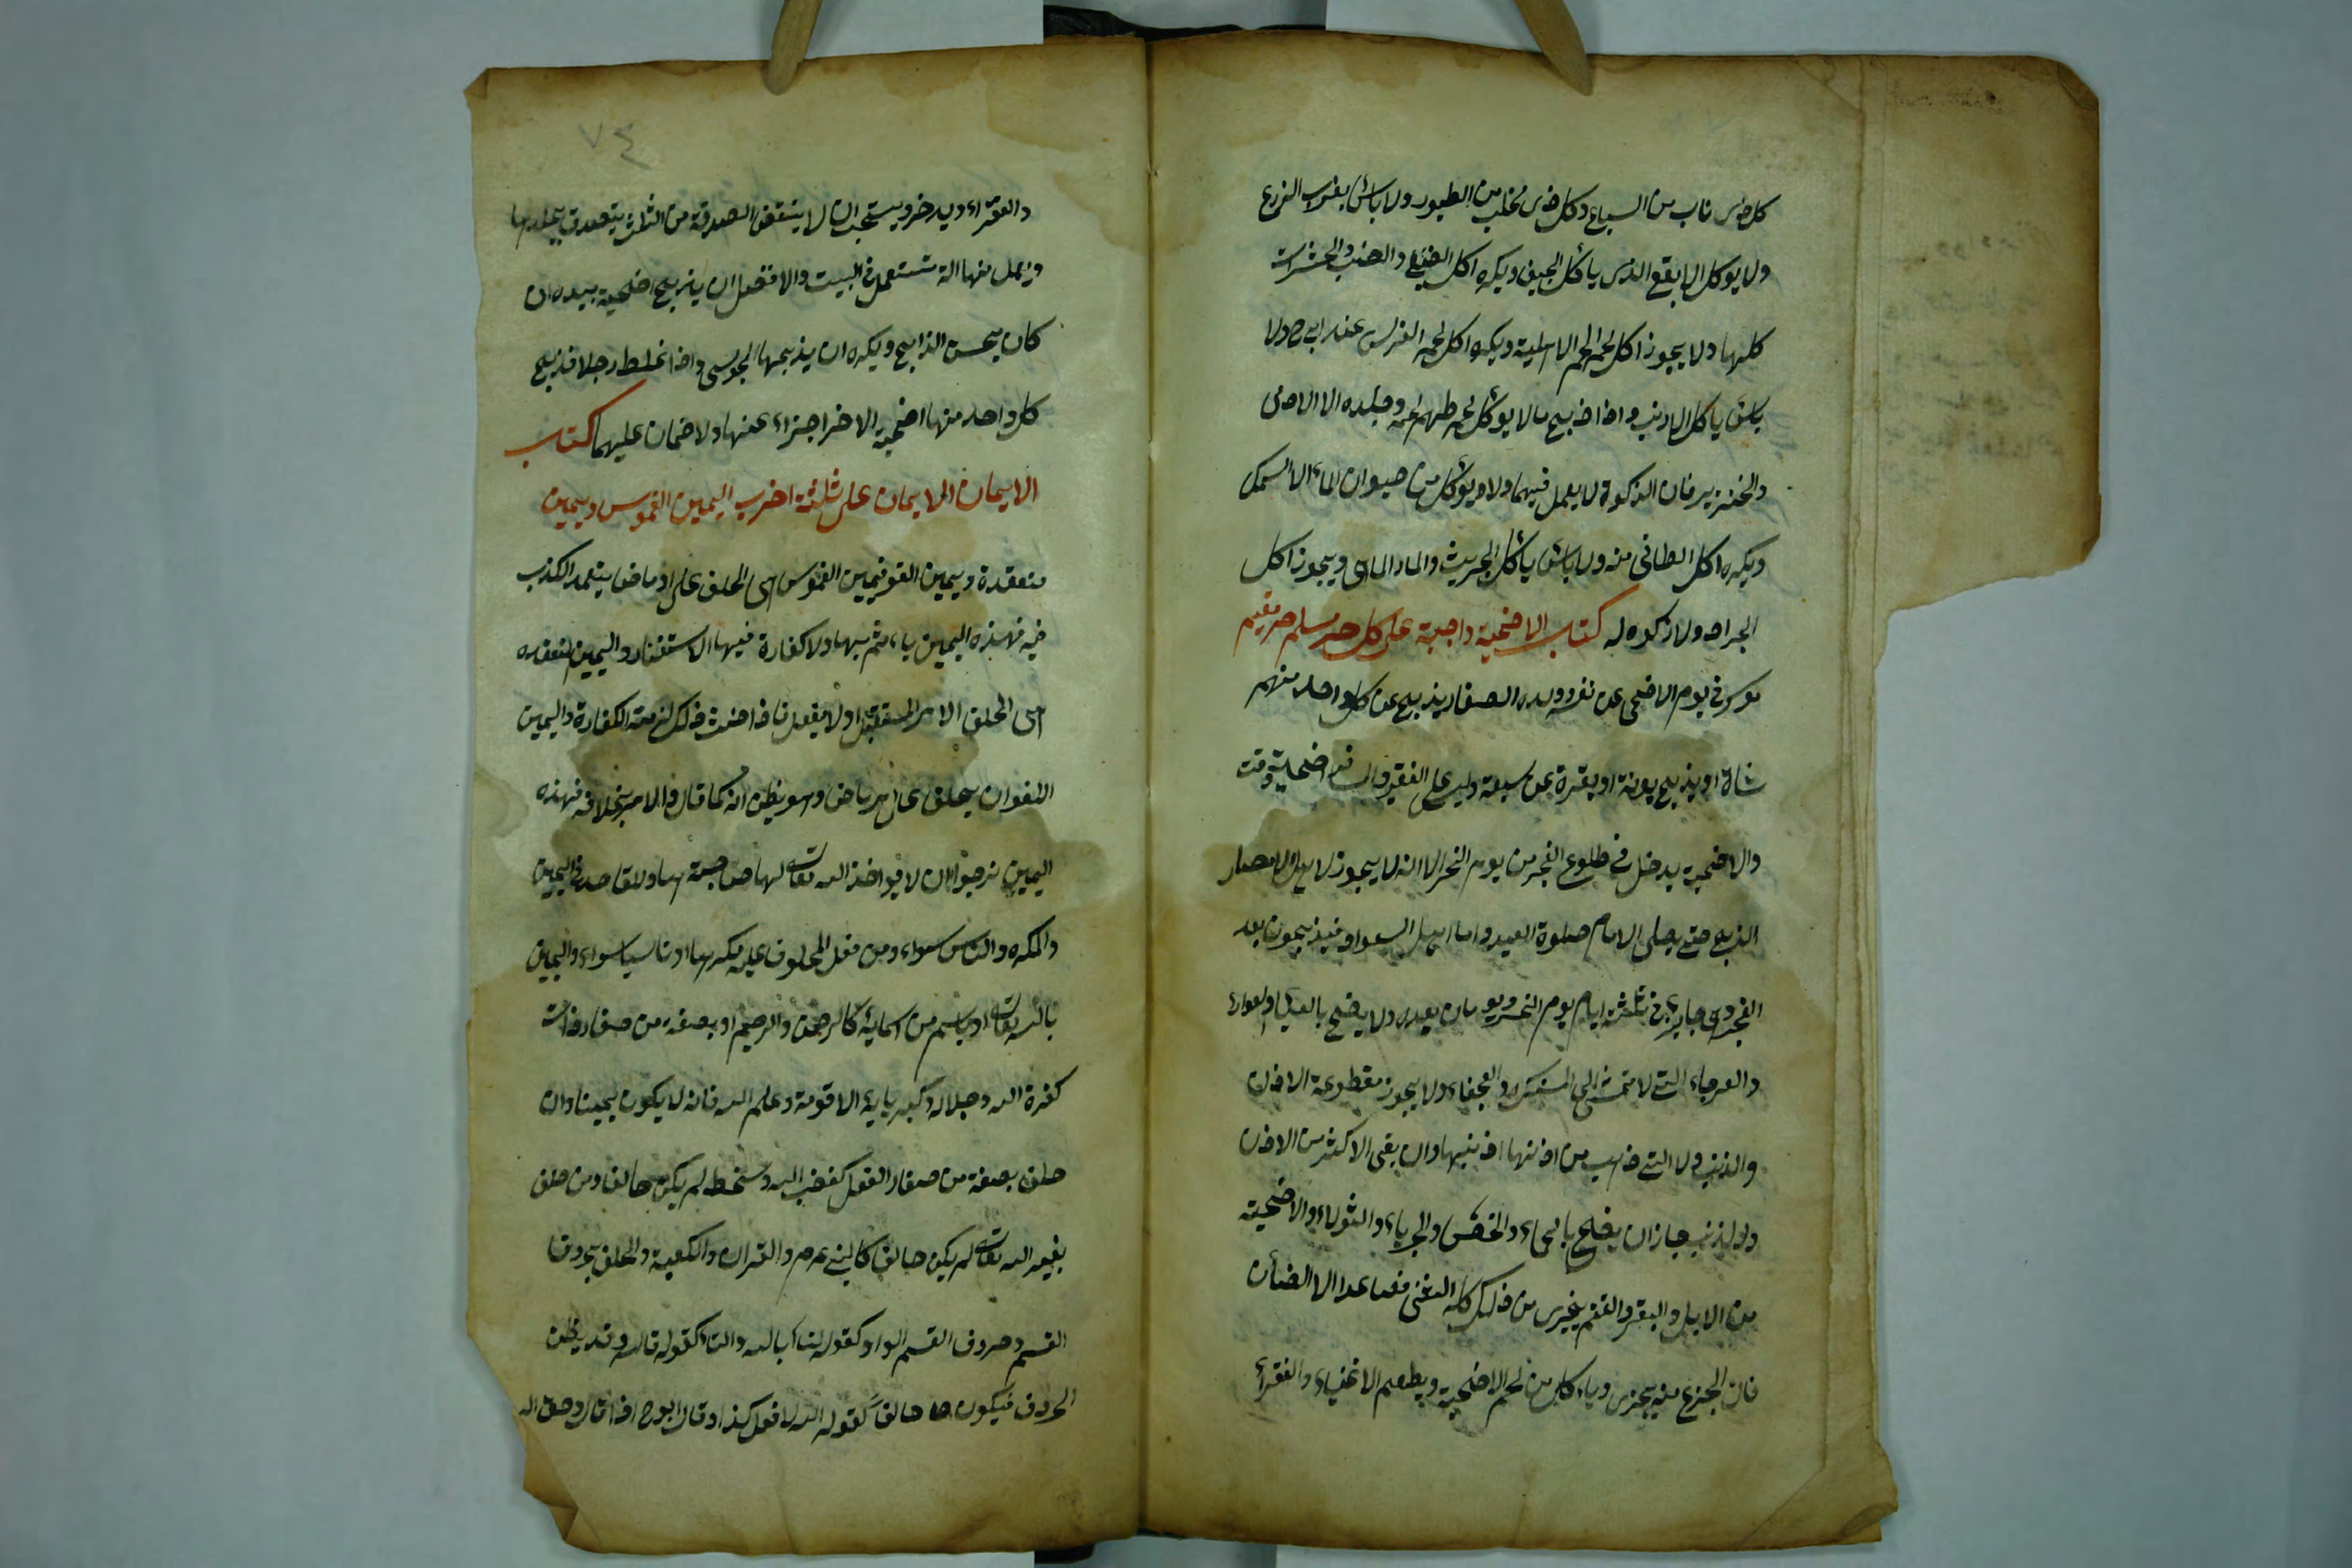 كل ذى ناب من السباع وكل ذى مخلب من الطيور ولا باس بغراب الزرع
ولا يوكل الابقع الذى ياكل الجيف ويكره اكل الضبع والضب والحشرات
كلها ولا يجوز اكل لحم الحمر الاهلية ويكره اكل لحم الفرس عند ابى ح ولا
باس ياكل الارنب واذا ذبح مالا يوكل لحمه طهر لحمه وجلده الا الادمى
والخنزير فان الذكوة لا يعمل فيهما ولا ويوكل من حيوان الماء الا السمك
ويكره اكل الطافى منه ولا باس ياكل الجريث والمار الماهى ويجوز اكل
الجراد ولا ذكوه له كتاب الاضحية واجبة على كل حر مسلم حر مقيم
موسر فى يوم الاضحى عن نفسه وولده الصغار يذبح عن كل واحد منهم
شاة او يذبح بدنة او بقرة عن سبعة وليس على الفقير والمسافر اضحية وقت
والاضحية يدخل فى طلوع الفجر من يوم النحر الا انه لا يجوز لاهل الامصار
الذبح حتى يصلى الامام صلوة العيد واما اهل السواد فيذبحون بعد
الفجر وهى جايزة فى ثلثة ايام يوم النحر ويومان بعده ولا يضحى بالعمياء والعوراء
والعرجاء التى لا تمشى الى المنسك والعجفاء ولا يجوز مقطوعة الاذن
والذنب ولا التى ذهب من اذنها اذنبها وان بقى الاكثر من الاذن
والذنب جاز ان يضحى بالجماء والخصى والجرباء والثولاء والاضحية
من الابل والبقر والغنم يجزى من ذلك كله الثنى فصاعدا الا الضأن
فان الجذع منه يجزى وياءكل من لحم الاضحية ويطعم الاغنياء والفقراء
٧٤
والفقراء ويدخر ويستحب ان لا ينقص الصدقة من الثلث يتصدق بجلدها
ويعمل منها الة تستعمل فى البيت والافضل ان يذبح اضحية بيده ان
كان يحسن الذابح ويكره ان يذبحها المجوسى واذا غلط رجلا فذبح
كل واحد منها اضحية الاخر اجزاء عنها ولا ضمان عليهما كتاب
الايمان الايمان على ثلثة اضرب اليمين الغموس ويمين
منعقدة ويمين اللغو فيمين الغموس هى الحلف على اوماض يتعمد الكذب
فيه فهذه اليمين ياءثم بها ولا كفارة فيها الا استغفار واليمين المنعقده
هى الحلف الامر المستقبل اولا يفعل فاذا حنث فى ذلك لزمته الكفارة واليمين
اللغو ان يحلف على امر ماض وهو يظن انه كما قال والامر بخلافه فهذه
اليمين نرجوا ان لا يواخذ الله تعالى لها صاحبة بها والقاصد فى اليمين
والمكره والناس سواء ومن فعل المحلوف عليه مكرها او ناسيا سواء واليمين
بالله تعالى او باسم من اسمايه كالرحمن والرحيم او بصفة من صفار ذاته
كعزة الله وجلاله وكبريايه الا قومة وعلم الله فانه لا يكون يمينا وان
حلف بصفة من صفار الفعل كغضب الله وسخطه لم يكن حالفا ومن حلف
بغير الله تعالى لم يكن حالفا كالنبى عم م والقران والكعبة والحلف بحروف
القسم وحروف القسم الواو كقوله لنا بالله والتاء كقوله تالله وقد يظمن
الحروف فيكون حالفاً كقوله الله لا فعل كذا وقال ابو ح اذا قال وحق الله